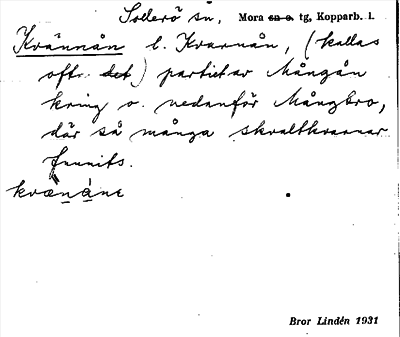 Sollerö sn, Mora sn o. tg, Kopparb. l.
Kvännån l. Kvarnån, (kallas
oftr. det) partiet av Mångån
kring o. nedanför Mångbro,
där så många skvaltkvarnar
funnits.
kvænåne
Bror Lindén 1931